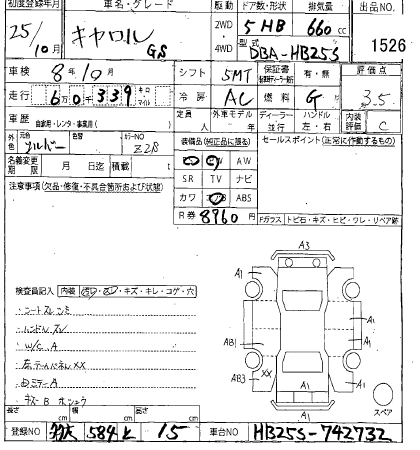 初度登録年月 車名・グレード 駆動 ドア数・形状 排気量 出品NO
25/10月 キャロル GS 2WD 4WD 5 HB 660 cc
型式 DBA-HB25S 1526
車検 8年10月 シフト 5MT 保証書 有・無 評価点
走行 6万0千339 キロ マイル 冷房 AC 燃料 G 3.5
車歴 自家用・レンタ・事業用( ) 定員 人 外車モデル 年 ディーラー 並行 ハンドル 左・右 内装評価 C
外色 元色 シルバー 色替 カラーNO Z2S
装備品(純正品に限る) セールスポイント(正常に作動するもの)
名義変更期限 月 日迄 積載( ) AW
SR TV ナビ
注意事項(欠品・修復・不具合箇所および状態) カワ エアB ABS
R券 8960 円
Fガラス トビ石・キズ・ヒビ・ワレ・リペア跡
A3
A1 A1
検査員記入 内装 汚レ・スレ・キズ・キレ・コゲ・穴
シートスレ シミ
ハンドル スレ
W/C A A1
左テールパネル XX AB1 A1
ロミラーA AB3 XX A1
キズ B ホシュウ A1
A1 スペア
長さ cm 幅 cm 高さ cm
登録NO 584 と 15 車台NO HB25S-742732